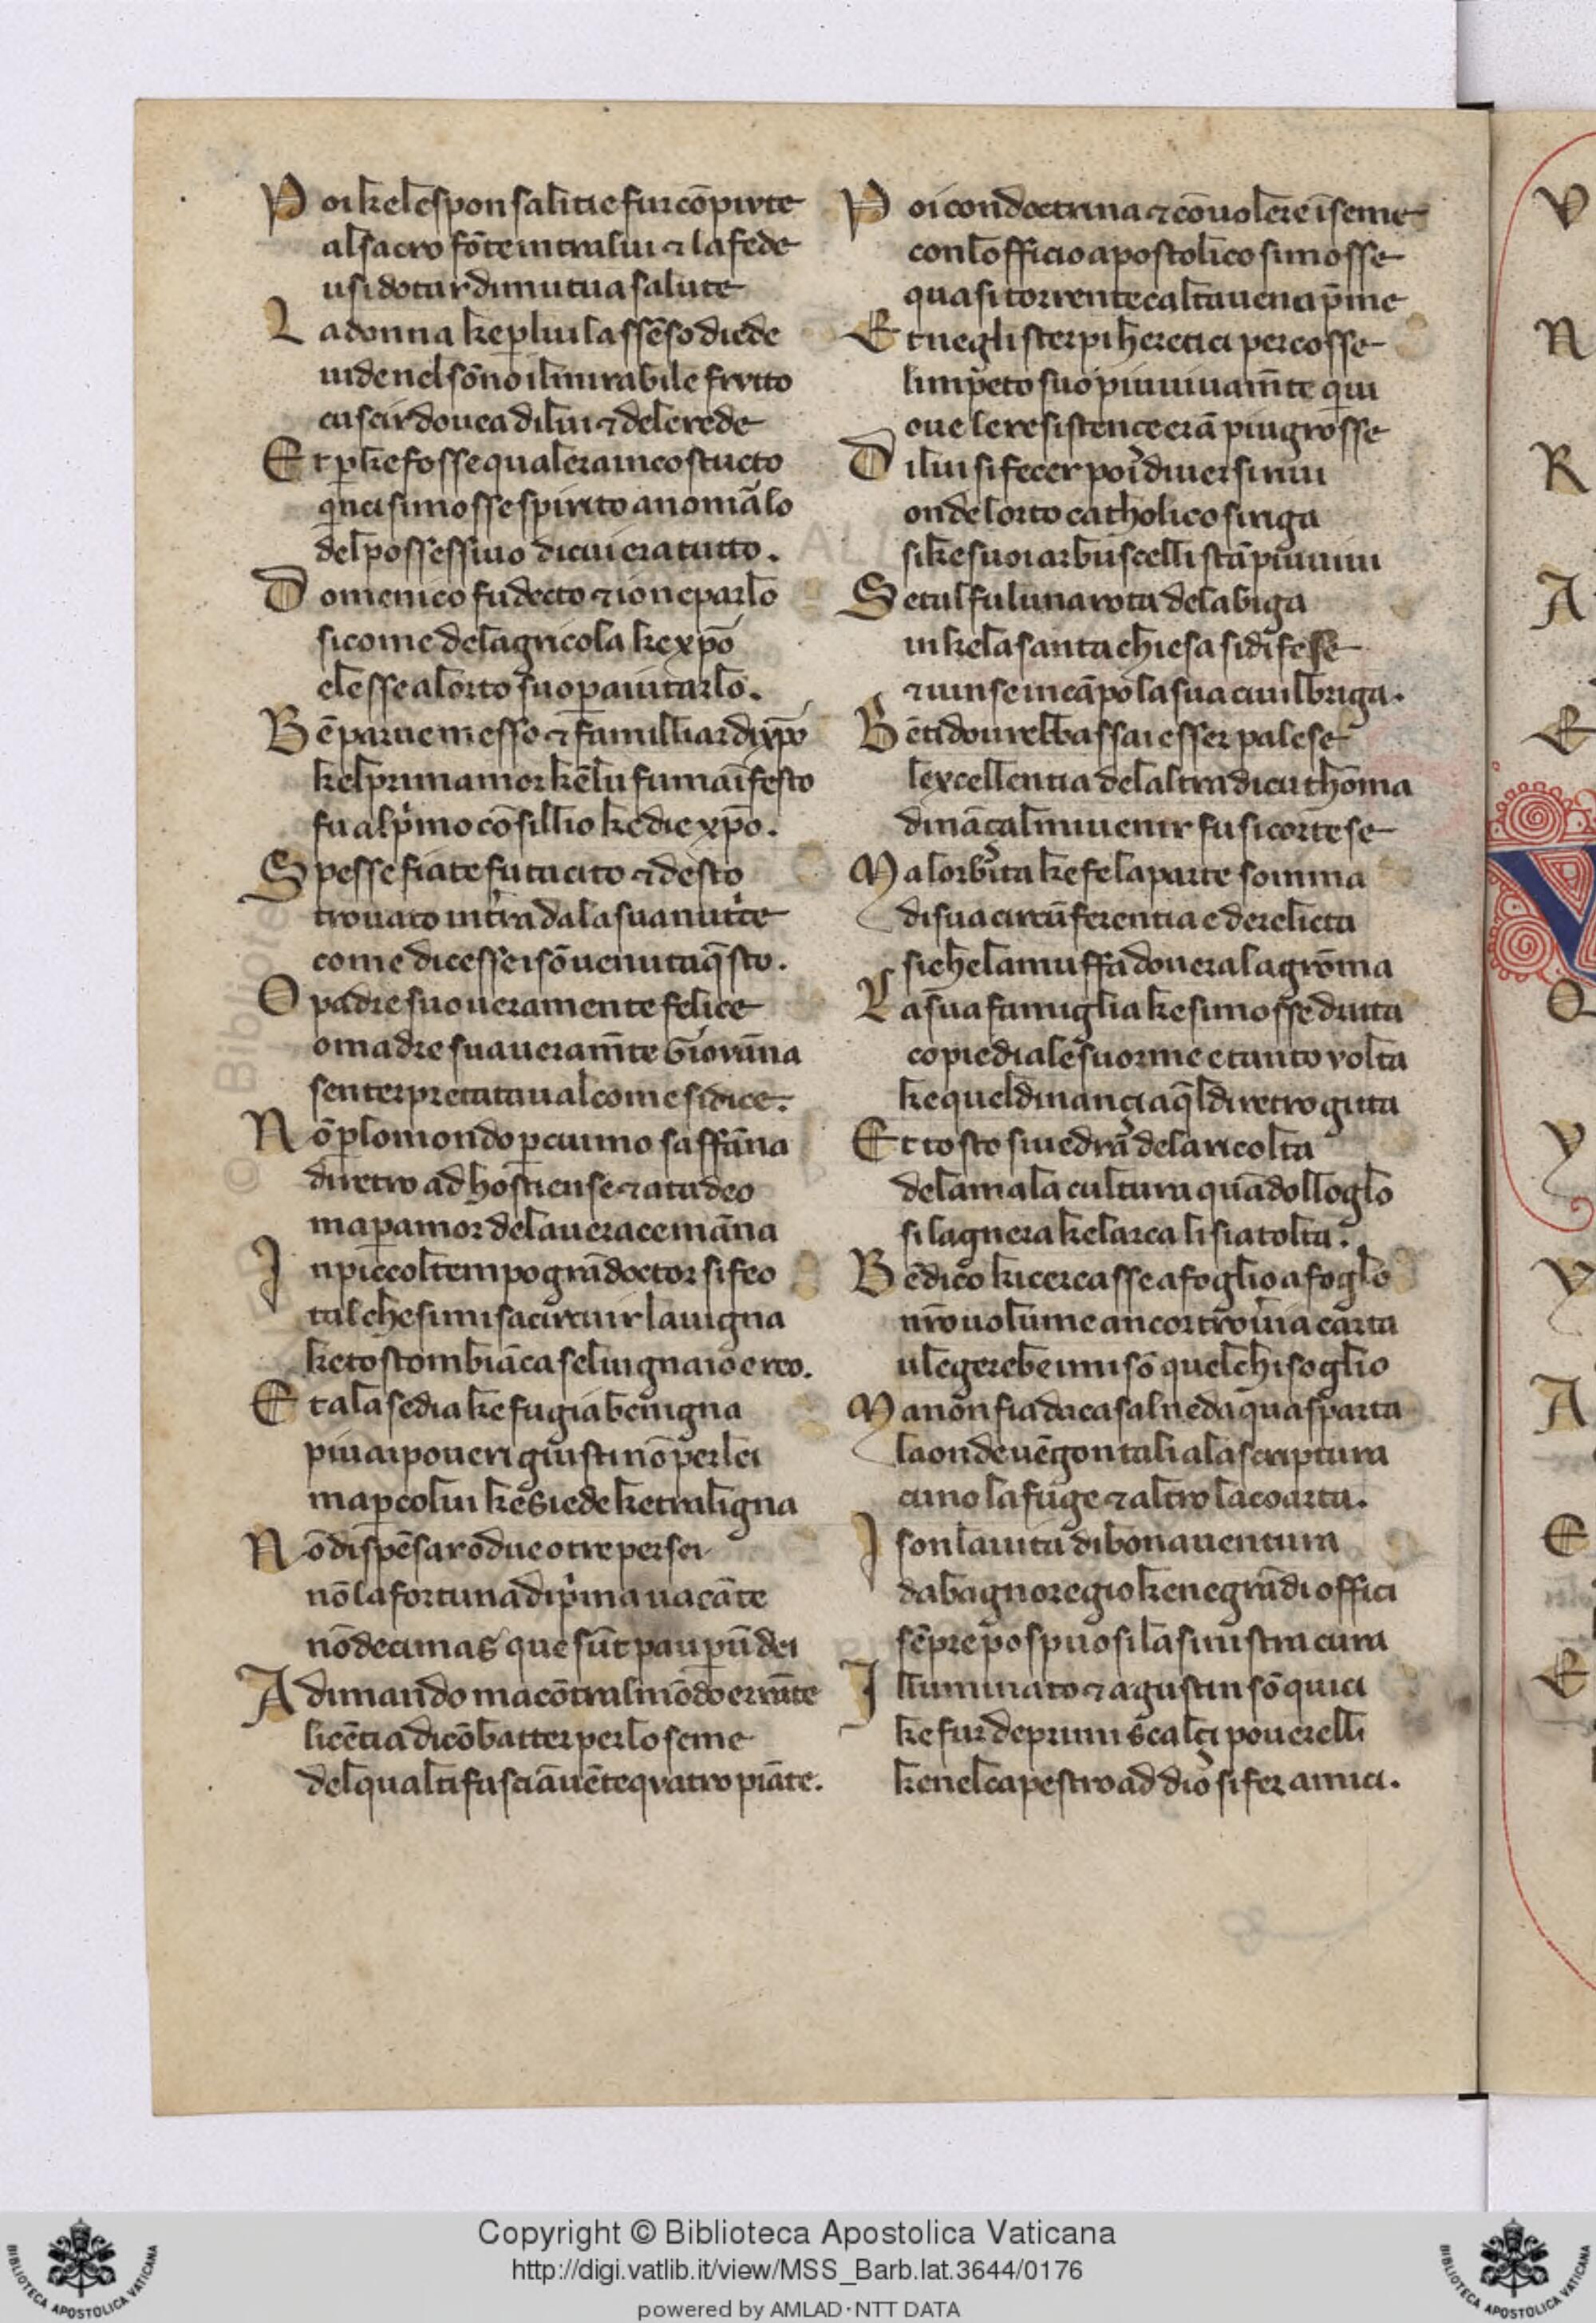 Poi kele sponsalitie fur cōpiute
al sacro fōte intra lui ⁊ la fede
u si dotar di mutua salute
La donna ke p lui lassēso diede
uide nel sōno il mirabile frutto
cuscir douea di lui ⁊ de le rede
Et p ke fosse qual era in costucto
quinci si mosse spirito a nomārlo
del possessiuo di cui era tutto.
Domenico fu decto ⁊ io ne parlo
si come de lagricola ke xp̄o
elesse a lorto suo p aiutarlo.
Bē parue messo ⁊ familliar di xp̄o
kel prim amor kē lui fu maīfesto
fu al p̄mo cōsillio ke die xp̄o.
Spesse fiate fu tacito ⁊ desto
trouato in tr̄ra da la sua nutrice
come dicesse i sō uenuto a q̄sto.
O padre suo ueramente felice
o madre sua ueram̄te Giouāna
senterpretata ual come si dice.
Nō p lo mondo p cui mo saffāna
diretro ad hostiense ⁊ a tadeo
ma p amor de la uerace māna
In piccol tempo grā doctor si feo
tal che si mis a circuir la uigna
ke tosto mbiāca sel uignaio e reo.
Et a la sedia ke fu gia benigna
piu ai poueri giusti nō per lei
ma p colui ke siede ke traligna
Nō dispēsar o due o tre per sei
nō la fortuna di p̄ma uacāte
nō decimas que sūt paup̄ū dei
Adimando ma cōtra l mōdo errāte
licētia di cōbatter per lo seme
del qual ti fascian uēteqvatro piāte.
Poi con doctrina ⁊ cō uolere īseme
con lofficio apostolico si mosse
quasi torrente calta uena p̄me
Et negli sterpi heretici percosse
limpeto suo piu uiuam̄te qui
oue le resistence erā piu grosse
Di lui si fecer poi diuersi riui
onde lorto catholico si riga
si ke suoi arbuscelli stā piu uiui
Se tal fu luna rota de la biga
in ke la santa chiesa si difese
⁊ uinse in cāpo la sua ciuil briga.
Bē ti dourebb assai esser palese
lexcellentia de laltra di cu thōma
dināçal mi uenir fu si cortese
Ma lorbita ke fe la parte somma
di sua circūferentia e derelicta
si che la muffa doue ra la grōma
La sua famiglia ke si mosse dritta
co piedi a le su orme e tanto volta
ke quel dinanci a q̄l diretro gitta
Et tosto si uedrā de la ricolta
de la mala cultura quādo lloglo
si lagnera ke larca li sia tolta.
Bē dico ki cercasse a foglio a foglo
n̄ro uolume ancor trouria carta
u legerebe i mi sō quel chi soglio
Ma non fia da casal ne da qua sparta
la onde uēgon tali a la scriptura
cuno la fuge ⁊ altro la coarta.
I son la uita di bonauentura
da bagnoregio ke ne grādi offici
sēpre pospuosi la sinistra cura
Illuminato ⁊ agustin sō quici
ke fur de primi scalci pouerelli
ke nel capestro ad dio si fer amici.
Copyright © Biblioteca Apostolica Vaticana
http://digi.vatlib.it/view/MSS_Barb.lat.3644/0176
powered by AMLAD·NTT DATA